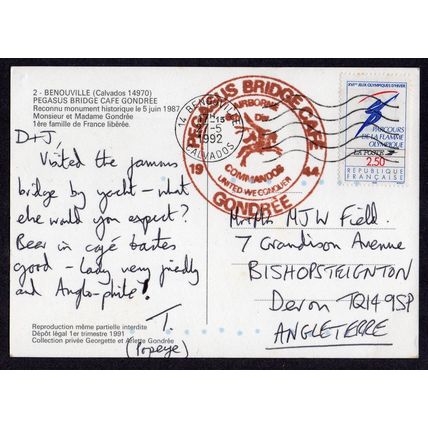 2 - BENOUVILLE (Calvados 14970)
PEGASUS BRIDGE CAFE GONDRÉE
Reconnu monument historique le 5 juin 1987
Monsieur et Madame Gondrée
1ère famille de France libérée.
D+J,
Visited the famous
bridge by yacht - what
else would you expect?
Beer in café tastes
good - Lady very friendly
and Anglo-phile!
T.
(Popeye)
Reproduction même partielle interdite
Dépôt légal 1er trimestre 1991
Collection privée Georgette et Arlette Gondrée
14 BENOUVILLE
-5
1992
CALVADOS
PEGASUS BRIDGE CAFÉ
AIRBORNE
Div
COMMANDOS
UNITED WE CONQUER
19 44
GONDRÉE
XVIes JEUX OLYMPIQUES D'HIVER
PARCOURS
DE LA FLAMME
OLYMPIQUE
LA POSTE
2,50
RÉPUBLIQUE
FRANÇAISE
MJW Field
7 Grandison Avenue
BISHOPSTEIGNTON
Devon TQ14 9SP
ANGLETERRE